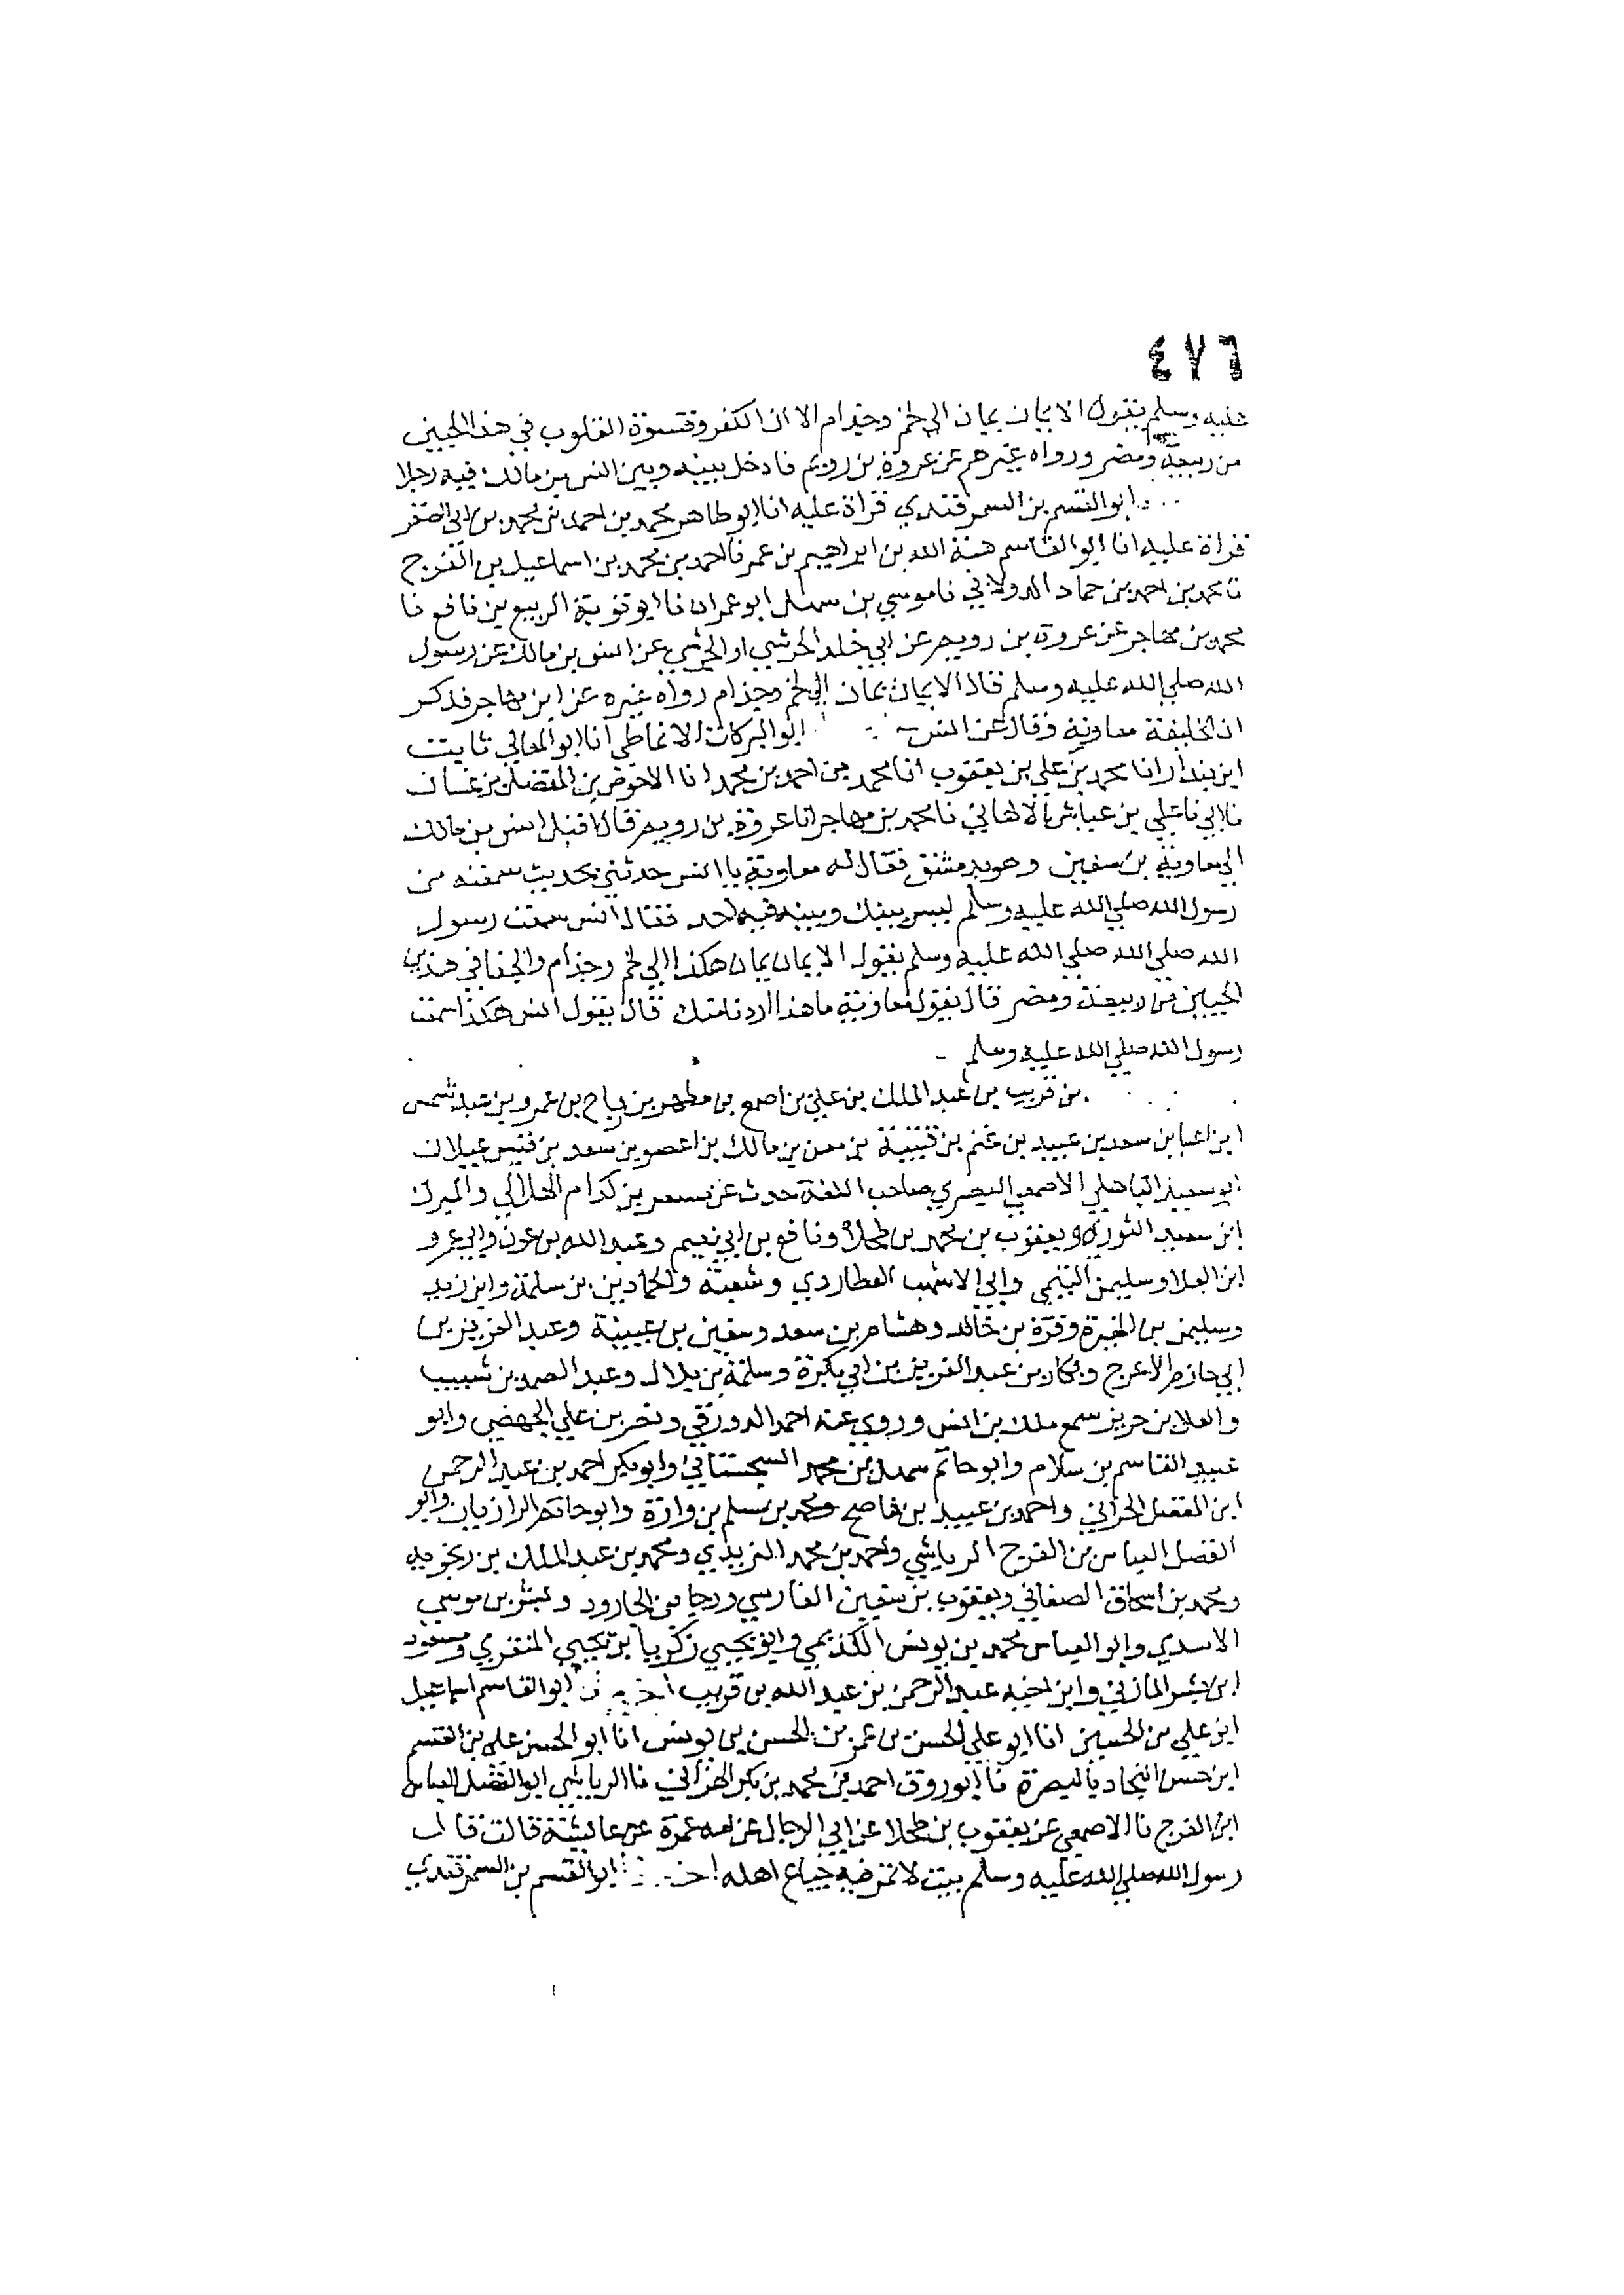 ٤٧٦
عليه وسلم يقول الايمان يمان الى لخم وجذام الا ان الكفر وقسوة القلوب في هذا الحيين
من ربيعة ومضر ورواه غيرهم عن عروة بن رويم فادخل بينه وبين انس بن مالك فيه رجلا
ابو القسم بن السمرقندي قراة عليه انا ابو طاهر محمد بن احمد بن محمد بن ابي الصقر
قراة عليه انا ابو القاسم هبة الله بن ابراهيم بن عمر نا احمد بن محمد بن اسماعيل بن الفرج
نا محمد بن احمد بن حماد الدولابي نا موسي بن سهل ابو عمران نا ابو توبة الربيع بن نافع نا
محمد بن مهاجر عن عروة بن رويم عن ابي خلد الحرشي او الجرشي عن انس بن مالك عن رسول
الله صلي الله عليه وسلم قال الايمان يمان الي لخم وجذام رواه غيره عن ابن مهاجر فذكر
ان الخليفة معاوية وقال عن انس ابو البركات الانماطي انا ابو المعالي ثابت
ابن بندار انا محمد بن علي بن يعقوب انا محمد بن احمد بن محمد انا الاحوص بن المفضل بن غسان
نا ابي نا علي بن عياش الالهاني نا محمد بن مهاجر انا عروة بن رويم قال اقبل انس بن مالك
الي معاوية بن سفين وهو بدمشق فقال له معاوية يا انس حدثني بحديث سمعته من
رسول الله صلي الله عليه وسلم ليس بينك وبينه فيه احد فقال انس سمعت رسول
الله صلي الله صلي الله عليه وسلم يقول الايمان يمان هكذا الي لخم وجذام والجفا في هذين
الحيين من ربيعة ومضر قال يقول معاوية ما هذا اردنا منك قال يقول انس هكذا سمعت
رسول الله صلي الله عليه وسلم
بن قريب بن عبد الملك بن علي بن اصمع بن مطهر بن رباح بن عمرو بن عبد شمس
ابن اعيا بن سعد بن عبيد بن غنم بن قتيبة بن معن بن مالك بن اعصر بن سعد بن قيس عيلان
ابو سعيد الباهلي الاصمعي البصري صاحب اللغة حدث عن مسعر بن كدام الهلالي والمبرك
ابن سعيد الثوري ويعقوب بن محمد بن طحلا ونافع بن ابي نعيم وعبد الله بن عون وابي عمرو
ابن العلا وسليمن التيمي وابي الاشهب العطاردي وشعبة والحمادين بن سلمة وابن زيد
وسليمن بن المغيرة وقرة بن خالد وهشام بن سعد وسفين بن عيينة وعبد العزيز بن
ابي حازم الاعرج وبكار بن عبد العزيز بن ابي بكرة وسلمة بن بلال وعبد الصمد بن شبيب
والعلا بن حريز سمع ملك بن انس وروي عنه احمد الدورقي ونصر بن علي الجهضمي وابو
عبيد القاسم بن سلام وابو حاتم سهل بن محمد السجستاني وابو بكر احمد بن عبد الرحمن
ابن المفضل الحراني واحمد بن عبيد بن ناصح ومحمد بن مسلم بن وارة وابو حاتم الرازيان وابو
الفضل العباس بن الفرج الرياشي واحمد بن محمد اليزيدي ومحمد بن عبد الملك بن زنجويه
ومحمد بن اسحاق الصغاني ويعقوب بن سفين الفارسي ورجا بن الجارود وبشر بن موسي
الاسدي وابو العباس محمد بن يونس الكديمي وابو يحيي زكريا بن يحيي المنقري ومسعود
ابن بشر المازني وابن اخيه عبد الرحمن بن عبد الله بن قريب ابو القاسم اسماعيل
ابن علي بن الحسين انا ابو علي الحسن بن عمر بن الحسن بن يونس انا ابو الحسن علي بن القسم
ابن حسن النجاد بالبصرة نا ابو روق احمد بن محمد بن بكر الهزاني نا الرياشي ابو الفضل العباس
ابن الفرج نا الاصمعي عن يعقوب بن طحلا عن ابي الرجال عن امه عمرة عن عائشة قالت قال
رسول الله صلي الله عليه وسلم بيت لا تمر فيه جياع اهله ابو القسم بن السمرقندي